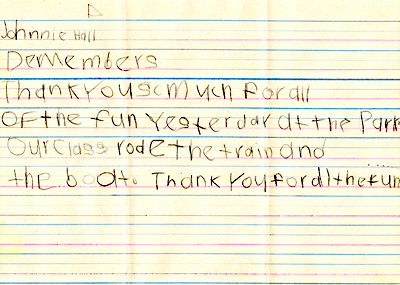 Johnnie Hall
DeMembers
Thank You so much for all
OF the fun Yesterdar at the Park
Our class rode the train and
the boat. Thank You for all the fun